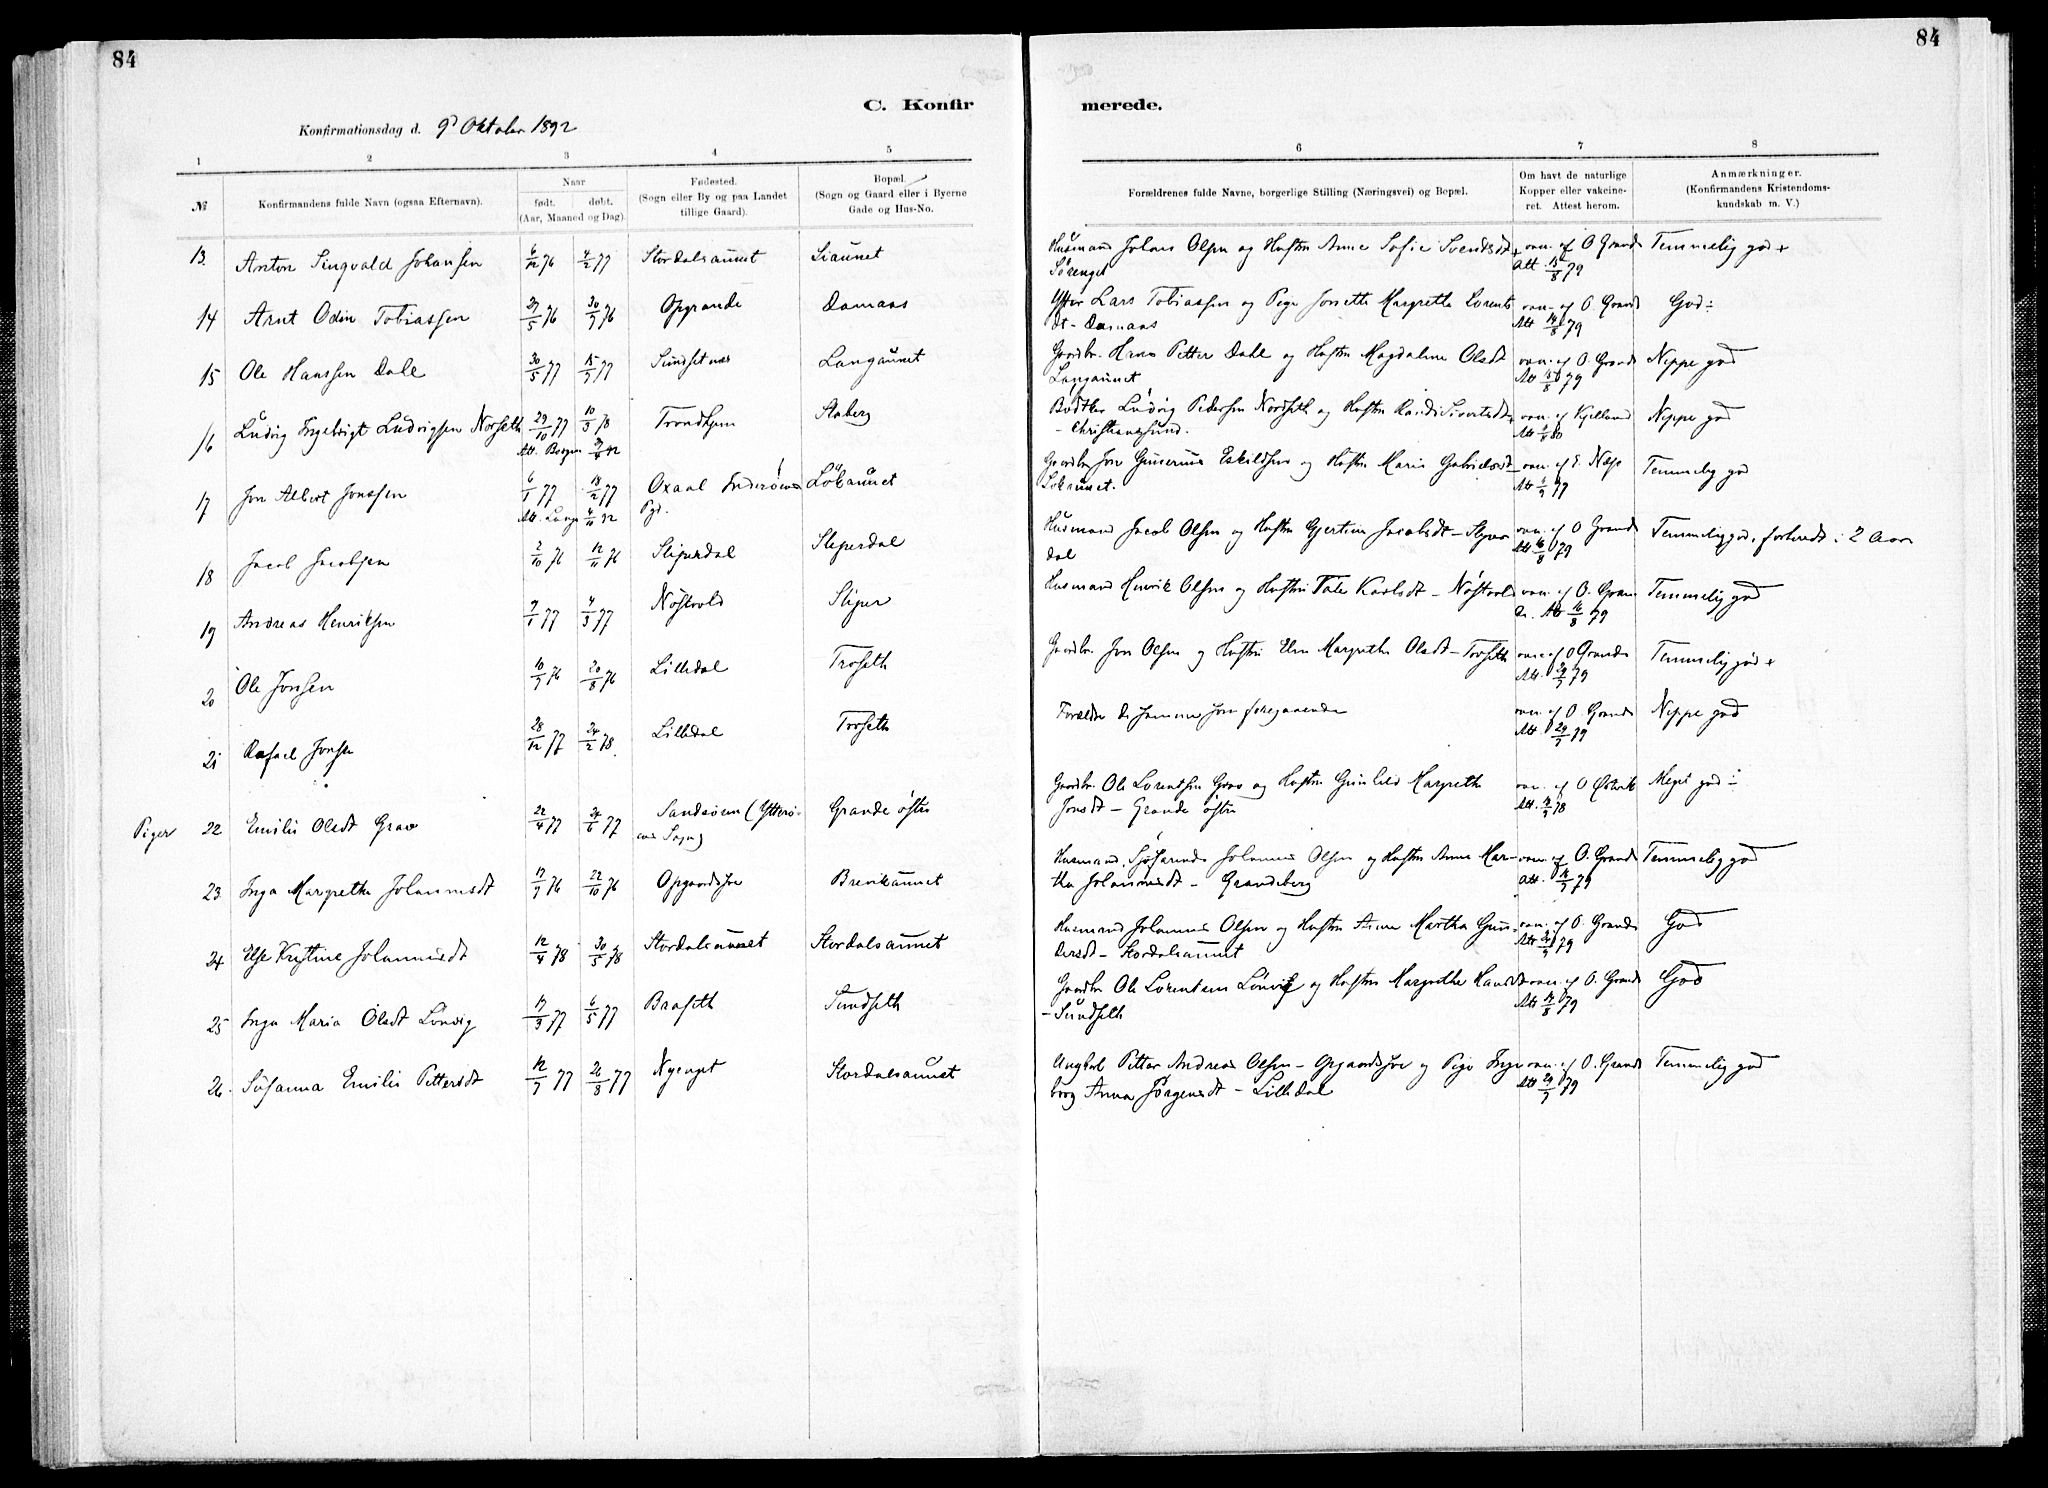 84
84
C. Konfir
merede.
Konfirmationsdag d. 9d Oktober 1892
1 2 3 4 5
6 7 8
№
Konfirmandens fulde Navn (ogsaa Efternavn).
Naar
født. døbt.
(Aar, Maaned og Dag).
Fødested.
(Sogn eller By og paa Landet
tillige Gaard).
Bopæl.
(Sogn og Gaard eller i Byerne
Gade og Hus-No.
Forældrenes fulde Navne, borgerlige Stilling (Næringsvei) og Bopæl.
Om havt de naturlige
Kopper eller vakcine-
ret. Attest herom.
Anmærkninger.
(Konfirmandens Kristendoms-
kundskab m. V.)
13. Anton Singvald Johansen 6/12 76 4/2 77 Stordalsaunet Liaunet Husmand Johans Olsen og Hustru Anne Sofie Svendsdt vac. af O Grande Temmelig god +
Sørenget Att. 15/8 79
14 Arnt Odin Tobiassen 27/5 76 30/7 76 Opgrande Damaas Lars Tobiassen og Pige Jonetta Margretha Lorents vac. af O. Grande God ÷
dt - Damaas Att 14/8 79
15 Ole Hanssen Dale 30/5 77 15/7 77 Sundsetnes Langaunet Gaardbr. Hans Petter Dahl og Hustru Magdalena Olsdt vac. af O. Grande Neppe god
Langaunet Att 15/8 79
16 Ludvig Ingebrigt Ludvigsen Norseth 29/10 77 10/3 78 Trondhjem Staberg Ludvig Pedersen Nordseth og Hustru Randi Sivertsdt vac. af Kjelland Neppe god
Att. Bergen - Christiansund.
17 Jon Albert Jonssen 6/1 77 18/2 77 Oxaal Inderøens Löbaunet Gaardbr Jon Gunerius Eskildsen og Hustru Maria Gabrielsdt vac. af E. Næss Temmelig god
Att. Lange 4/10 92 Pgd. Löbaunet. Att 77
18 Jacob Jacobsen 2/10 76 12/11 76 Sliperdal Sliperdal Husmand Jacob Olsen og Hustru Gjertine Jacobsdt - Sliper vac. af O Grande Temmelig god, forberedt i 2 Aar
dal Att 16/8 79
19 Andreas Henriksen 7/1 77 4/3 77 Nöstvold Sliper Husmand Henrik Olsen og Hustru Tale Karlsdt - Nöstvold vac. af O. Gran Temmelig god
de. Att 16/8 79
20 Ole Jonsen 10/7 76 20/8 76 Lilledal Troseth Gaardbr. Jon Olsen og Hustru Elen Margretha Olsdt - Troseth vac. af O Grande Temmelig god +
Att. 29/7 79
21 Rafael Jonsen 28/12 77 24/2 78. Lilledal Troseth Forældre de samme som foregaaende vac. af O Grande Neppe god
Att. 29/7 79
Piger 22 Emilie Olsdt Grav 22/4 77 24/6 77 Sandsören (Ytterö- Grande östre Gaardbr. Ole Lorentsen Grav og Hustru Gunhild Margretha vac. af O Meget god ÷
ens Sogn) Jonsdt - Grande östre Att. 78
23 Inga Margretha Johannesdt 17/9 76 22/10 76 Opgaardshoe Brevikaunet Husmand, Sjöfarende Johannes Olsen og Hustru Anne Mar- vac. af O. Grande Temmelig god
tha Johannesdt - Grandeberg Att. 79
24 Else Kristine Johannesdt 12/4 78 30/5 78 Stordalsaunet Stordalsaunet Husmand Johannes Olsen og Hustru Anne Martha Gun- vac. af O. Grande God
dersdt - Stordalsaunet Att 79
25 Inga Maria Olsdt Lönvig 17/3 77 6/5 77 Braseth Sundseth Gaardbr Ole Lorentsen Lönvig og Hustru Margretha Hansdt vac. af O. Grande God
- Sundseth Att 14/8 79
26. Susanna Emilie Pettersdt 12/7 77 26/8 77 Nyenget Stordalsaunet Ungkarl Petter Andreas Olsen - Opgaardshoe og Pige Inge vac. af O. Grande Temmelig god
borg Anna Jörgensdt - Lilledal Att 29/7 79